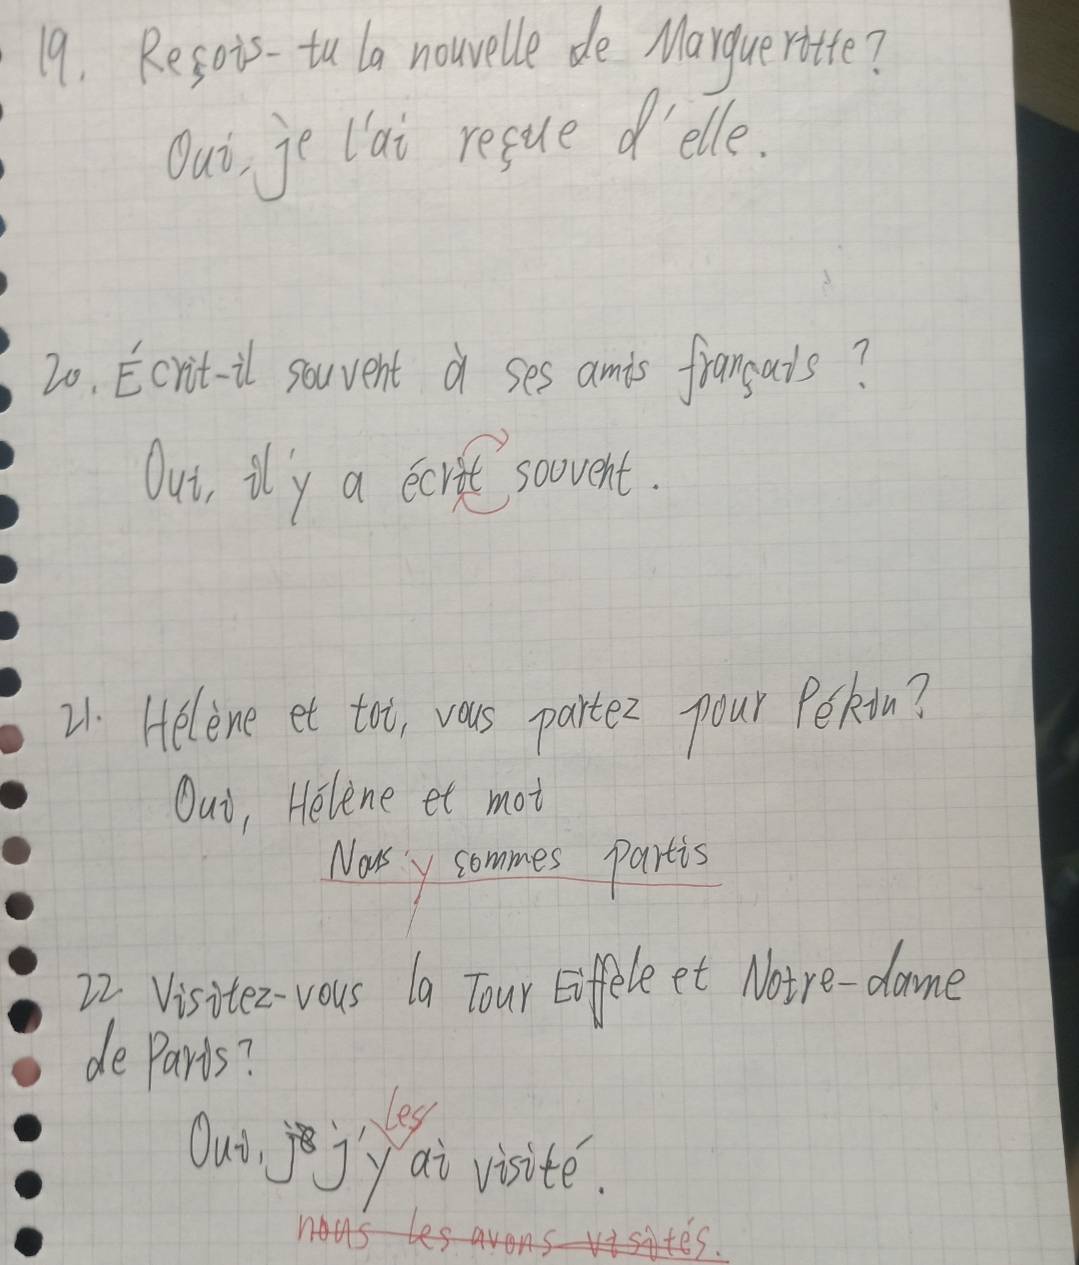 19. Reçois-tu la nouvelle de Margueritte?
Oui, je l'ai reçue d'elle.
20. Écrit-il souvent à ses amis français?
Oui, il y a écrit souvent.
21. Hélène et toi, vous partez pour Pékin?
Oui, Hélène et moi
Nous y sommes partis
22. Visitez-vous la Tour Eiffèle et Notre-dame
de Paris?
les
Oui, je j'y ai visité.
nous les avons visités.